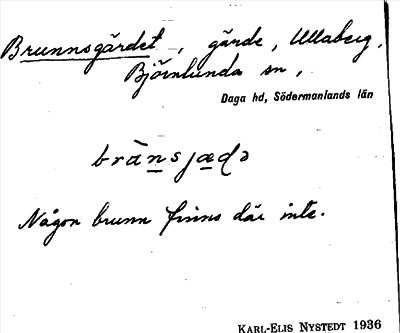 Brunnsgärdet, gärde, Ullaberg,
Björnlunda sn,
Daga hd, Södermanlands län
brànsjædə
Någon brunn finns där inte.
KARL-ELIS NYSTEDT 1936